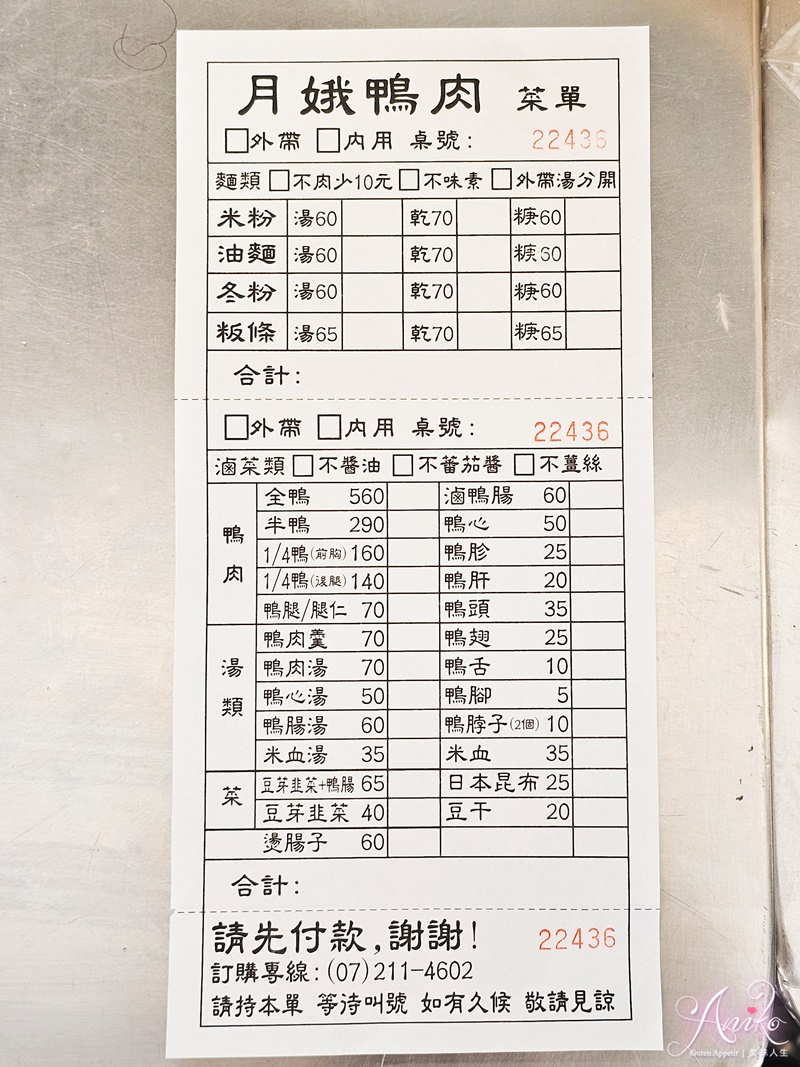 月娥鴨肉 菜單
□外帶 □內用 桌號： 22436
麵類 □不肉少10元 □不味素 □外帶湯分開
米粉 湯60 乾70 糖60
油麵 湯60 乾70 糖60
冬粉 湯60 乾70 糖60
粄條 湯65 乾70 糖65
合計：
□外帶 □內用 桌號： 22436
滷菜類 □不醬油 □不蕃茄醬 □不薑絲
鴨肉
全鴨 560 滷鴨腸 60
半鴨 290 鴨心 50
1/4鴨(前胸) 160 鴨胗 25
1/4鴨(後腿) 140 鴨肝 20
鴨腿/腿仁 70 鴨頭 35
湯類
鴨肉羹 70 鴨翅 25
鴨肉湯 70 鴨舌 10
鴨心湯 50 鴨腳 5
鴨腸湯 60 鴨脖子(2個) 10
米血湯 35 米血 35
菜
豆芽韭菜+鴨腸 65 日本昆布 25
豆芽韭菜 40 豆干 20
燙腸子 60
合計：
請先付款,謝謝! 22436
訂購專線:(07)211-4602
請持本單 等待叫號 如有久候 敬請見諒
Aniko
Guten Appetit | 美味人生